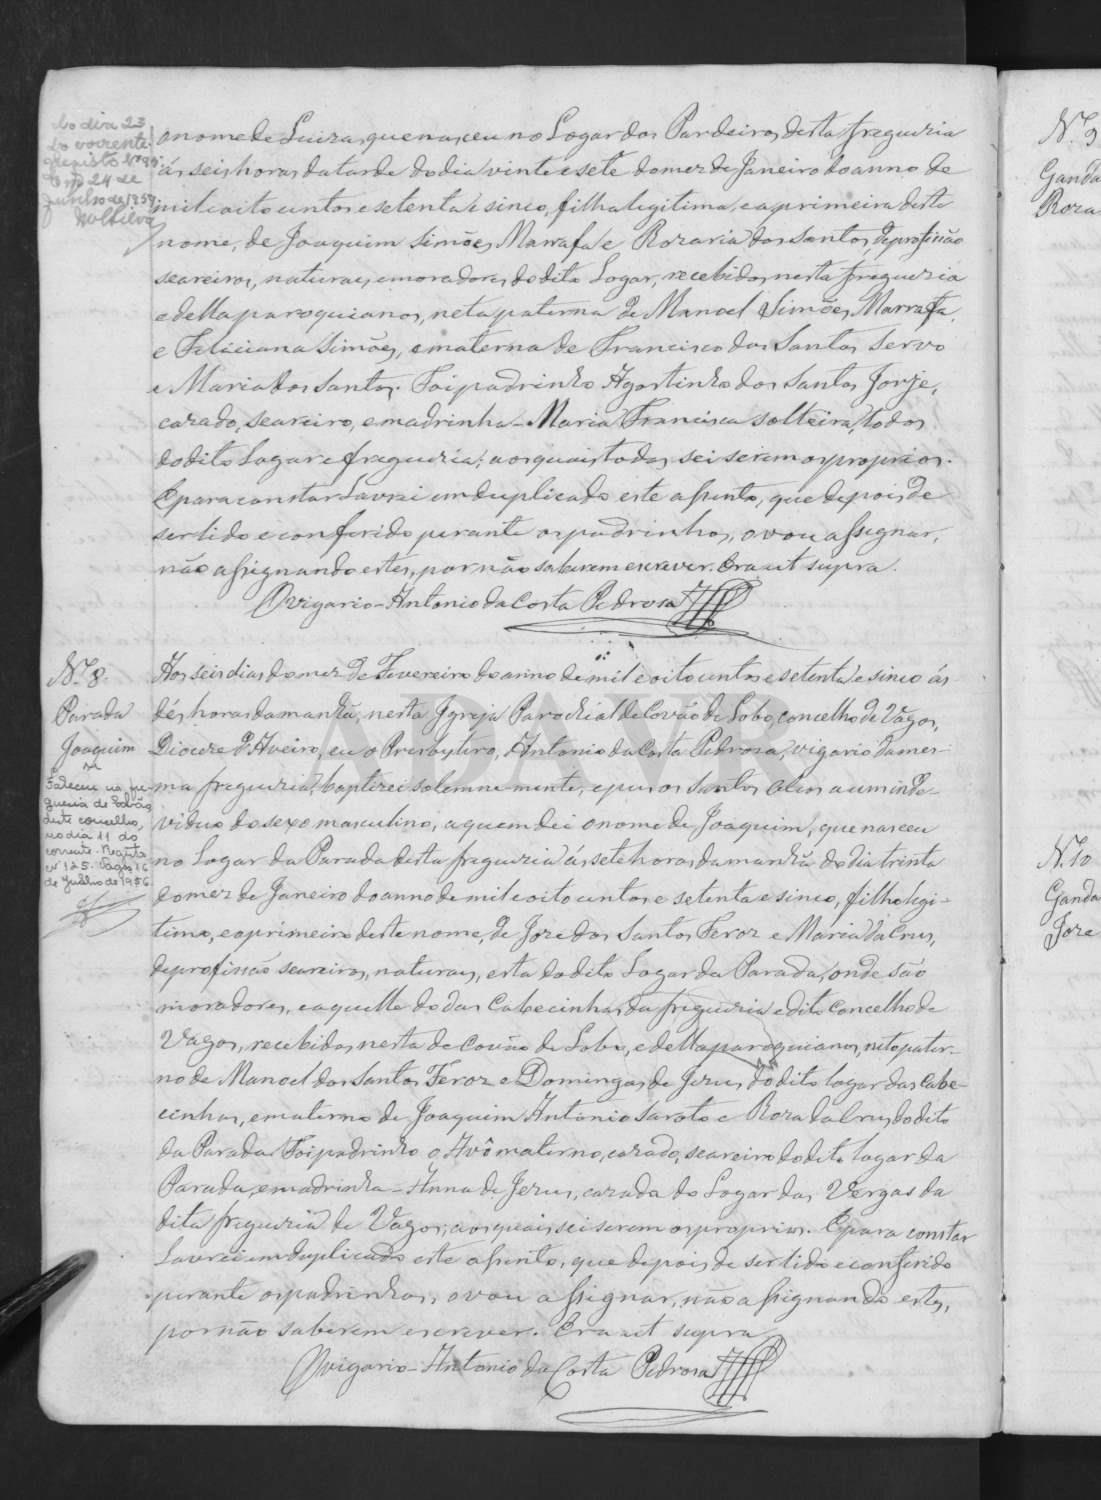 do dia 23
do corrente
registo Nº 99
24 de
Junho de 1957
o nome de Luiza, que nasceu no Logar dos Pardeiros, desta freguezia
ás seis horas da tarde do dia vinte e sete do mez de Janeiro do anno de
mil e oito centos e setenta e sinco, filha legitima, e a primeira deste
nome, de Joaquim Simões Marrafa e Rozaria dos Santos, de profissão
seareiros, naturaes, e moradores do dito Logar, recebidos nesta freguezia
e della paroquianos, neta paterna de Manoel Simões Marrafa,
e Feliciana Simões, e materna de Francisco dos Santos Servo
e Maria dos Santos. Foi padrinho Agostinho dos Santos Jorje,
cazado, seareiro, e madrinha - Maria Francisca solteira, todos
do dito Logar e freguezia; aos quais todos sei serem os proprios.
E para constar Lavrei em duplicado este assento, que depois de
ser lido e conferido perante os padrinhos, o vou assignar,
não assignando estes, por não saberem escrever. Era ut supra.
O vigario - Antonio da Costa Pedroza
N.º 8
Parada
Joaquim
Faleceu na fre-
guesia de Sosão
deste concelho,
no dia 11 do
corrente. Registo
nº 125. Vagos 16
de Julho de 1956
Aos seis dias do mez de Fevereiro do anno de mil e oito centos e setenta e sinco ás
dés horas da manhã, nesta Igreja Parochial de Covão do Lobo, concelho de Vagos,
Diocese d'Aveiro, eu o Presbytero, Antonio da Costa Pedroza, vigario da mes-
ma freguezia, baptizei solemnemente, e pus os Santos Oleos a um indi-
viduo do sexo masculino, a quem dei o nome de Joaquim, que nasceu
no Logar da Parada desta freguezia ás sete horas da manhã do dia trinta
do mez de Janeiro do anno de mil e oito centos e setenta e sinco, filho legi-
timo, e o primeiro deste nome, de Joze dos Santos Feroz e Maria da Crus,
de profissão seareiros, naturaes, esta do dito Logar da Parada, onde são
moradores, e aquelle do das Cabecinhas da freguezia e dito Concelho de
Vagos, recebidos nesta de Covão do Lobo, e della paroquianos, neto pater-
no de Manoel dos Santos Feroz e Domingas de Jezus do dito logar das Cabe-
cinhas, e materno de Joaquim Antonio Saroto e Roza da Crus do dito
da Parada. Foi padrinho o Avô materno, cazado, seareiro do dito logar da
Parada, e madrinha - Anna de Jezus, cazada do Logar das Vergas da
dita freguezia de Vagos, aos quais sei serem os proprios. E para constar
Lavrei em duplicado este assento, que depois de ser lido e conferido
perante os padrinhos, o vou assignar, não assignando estes,
por não saberem escrever. Era ut supra
O vigario - Antonio da Costa Pedroza
ADAVR
N.º 9
Ganda
Roza
N. 10
Ganda
Joze